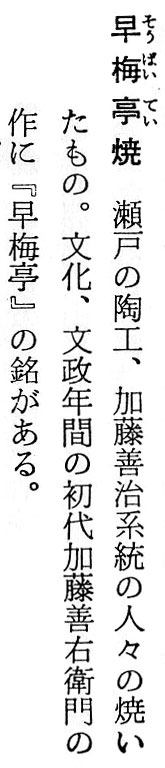 早梅亭焼　瀬戸の陶工、加藤善治系統の人々の焼い
たもの。文化、文政年間の初代加藤善右衛門の
作に『早梅亭』の銘がある。